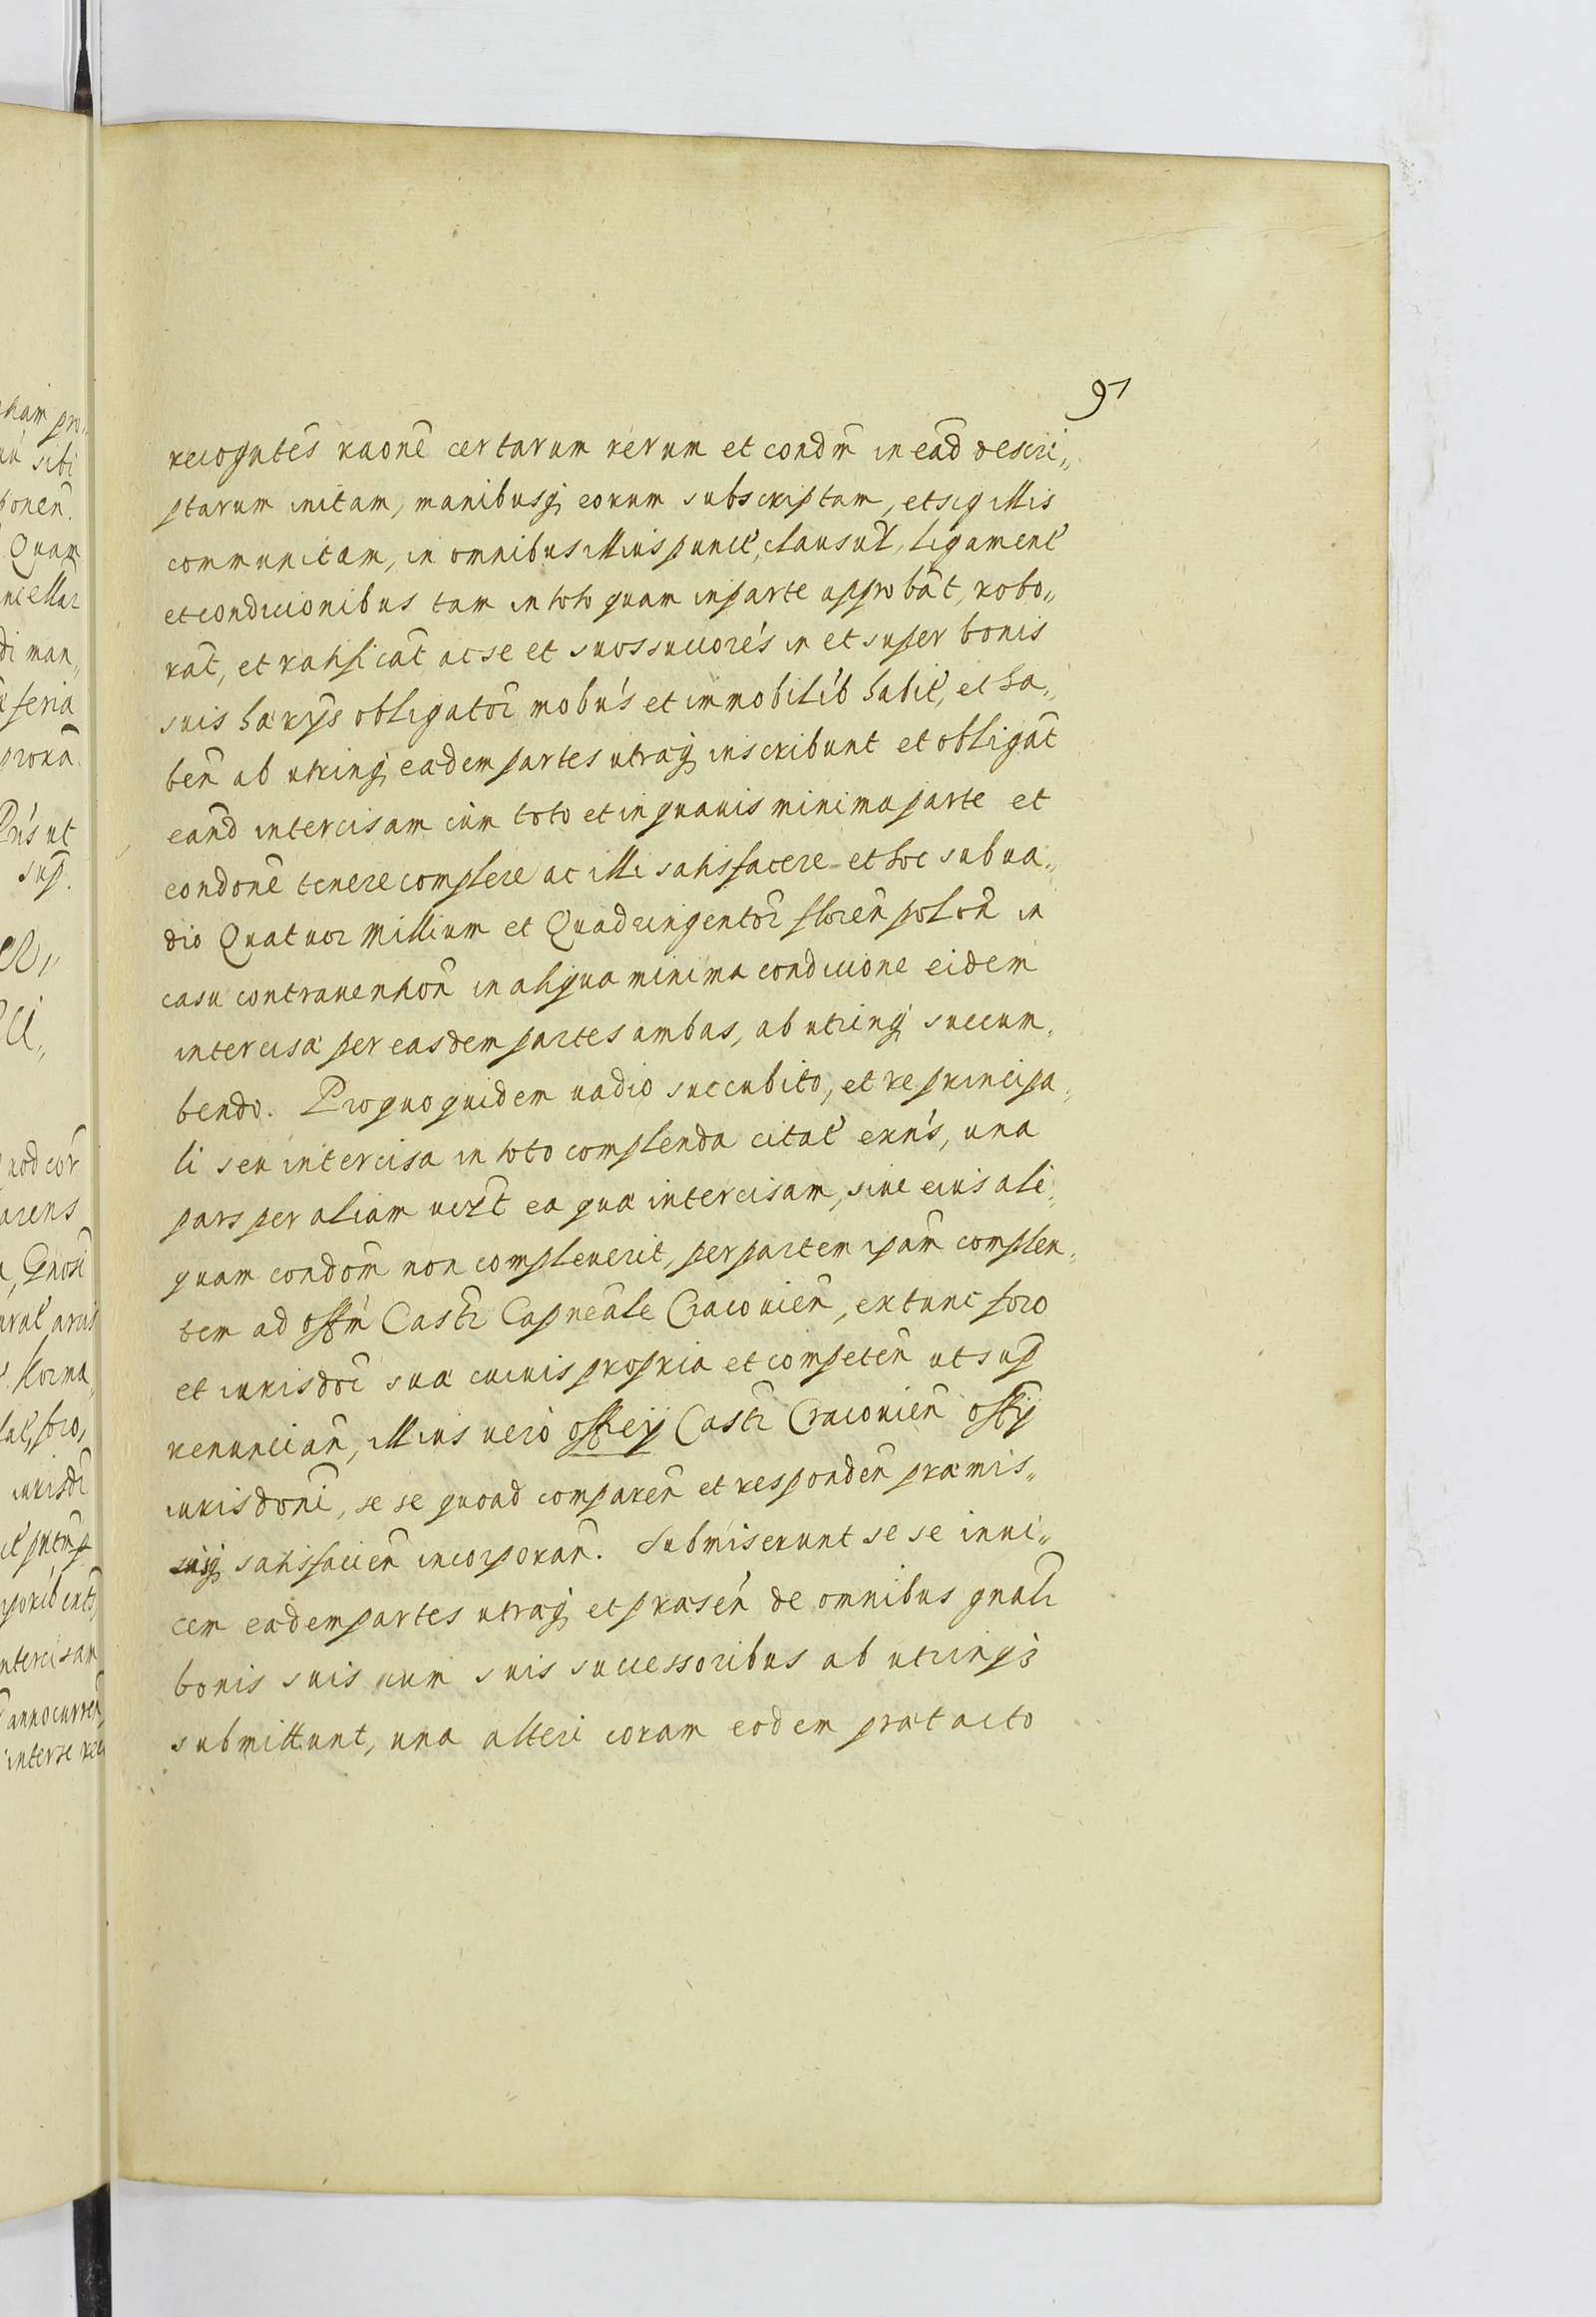 91
recogntēs raōne certarum rerum et condm̄ in eād descri„
ptarum initam, manibusq eorum subscriptam, et sigillis
communitam, in omnibus illius punct, clausul, ligament
et condicionibus tam in toto quam in parte approbāt, robo„
rāt, et ratificāt ac se et suos succorés in et super bonis
suis hærijs obligatōr mobús et immobilíb habit, et ha„
beñ ab utrinq eædem partes utræq inscribunt et obligāt
eānd intercisam cum toto et in quauis minima parte et
condonē tenere complere ac illi satisfacere et hoc sub ua„
dio Quatuor Millium et Quadringentor̄ floreñ poloñ in
casu contrauentioñ in aliqua minima condicione eidem
intercisæ per easdem partes ambas, ab utrinq succum„
bendo. Pro quo quidem uadio succubito, et re principa„
li seu intercisa in toto complenda citat exńs, una
pars per aliam uizt̄ ea quæ intercisam, siue eius ali„
quam condōm non compleuerit, per partem ipam̄ complen„
tem ad offm̄ Castr̄ Capneāle Cracouieñ, extunc foro
et iurisdoc̄ suæ cuiuis propria et competeñ ut sup̄
renunciañ, illius uero officij Castr̄ Cracouieñ offij
iurisdonī, se se quoad compareñ et respondeñ præmis„
sisq satisfacieñ incorporañ. Submiserunt se se inui„
cem eædem partes utræq et præseń de omnibus gnalr̄
bonis suis cum suis successoribus ab utrinq3
submittunt, una alteri coram eodem prætacto